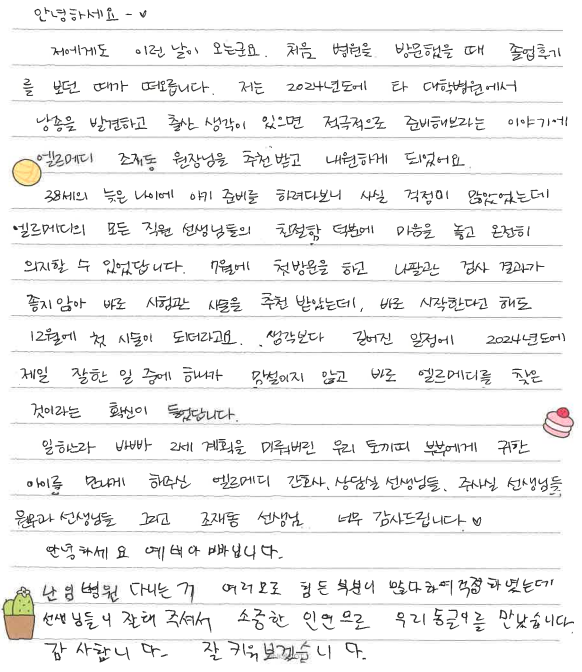 안녕하세요~♥
저에게도 이런 날이 오는군요. 처음 병원을 방문했을 때 졸업후기
를 보던 때가 떠오릅니다. 저는 2024년도에 타 대학병원에서
낭종을 발견하고 출산 생각이 있으면 적극적으로 준비해보라는 이야기에
엘르메디 조재동 원장님을 추천 받고 내원하게 되었어요.
38세의 늦은 나이에 아기 준비를 하려다보니 사실 걱정이 많았었는데
엘르메디의 모든 직원 선생님들의 친절함 덕분에 마음을 놓고 온전히
의지할 수 있었답니다. 7월에 첫방문을 하고 나팔관 검사 결과가
좋지않아 바로 시험관 시술을 추천 받았는데, 바로 시작한다고 해도
12월에 첫 시술이 되더라고요. 생각보다 길어진 일정에 2024년도에
제일 잘한 일 중에 하나가 망설이지 않고 바로 엘르메디를 찾은
것이라는 확신이 들었답니다.
일하느라 바빠 2세 계획을 미뤄버린 우리 토끼띠 부부에게 귀한
아이를 만나게 해주신 엘르메디 간호사, 상담실 선생님들, 주사실 선생님들
원무과 선생님들 그리고 조재동 선생님 너무 감사드립니다.♥
안녕하세요 예비아빠입니다.
난임병원 다니는게 여러모로 힘든 부분이 많다하여 걱정하였는데
선생님들이 잘해주셔서 소중한 인연으로 우리 둥글이를 만났습니다.
감사합니다. 잘 키워보겠습니다.